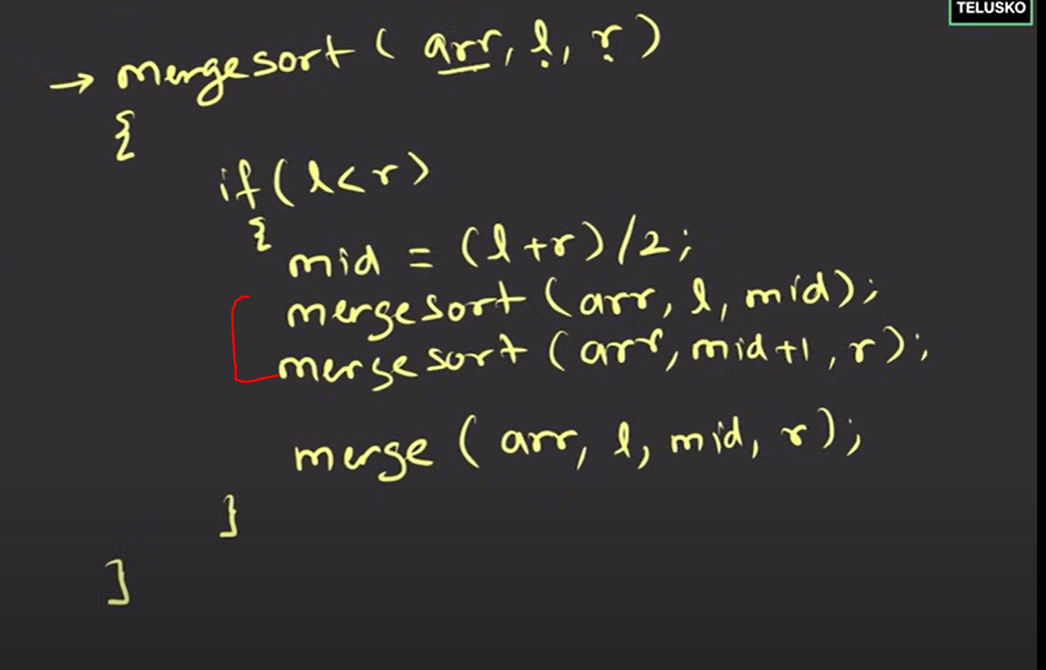 TELUSKO
→ mergesort ( arr, l, r )
{
if ( l < r )
{
mid = ( l + r ) / 2;
mergesort ( arr, l, mid );
mergesort ( arr, mid+1, r );
merge ( arr, l, mid, r );
}
}